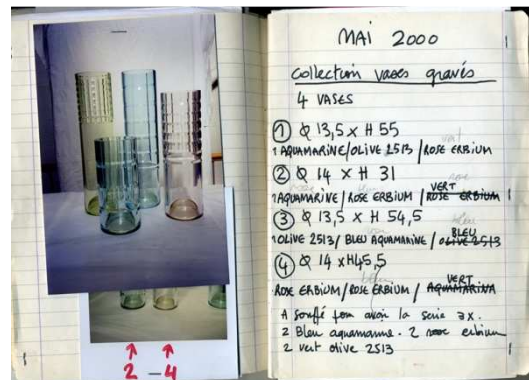 MAI 2000
collection vases gravés
4 VASES
① Ø 13,5 x H 55
vert
1 AQUAMARINE/OLIVE 2513 /ROSE ERBIUM
② Ø 14 x H 31
rose bleu rose
VERT
1 AQUAMARINE/ ROSE ERBIUM / ROSE ERBIUM
③ Ø 13,5 x H 54,5
bleu
BLEU
1 OLIVE 2513/ BLEU AQUAMARINE / OLIVE 2513
④ Ø 14 x H 45,5
bleu
VERT
ROSE ERBIUM / ROSE ERBIUM / AQUAMARINA
A soufflé pour avoir la serie 3x.
2 Bleu aquamarine. 2 rose erbium
2 vert olive 2513
2 - 4